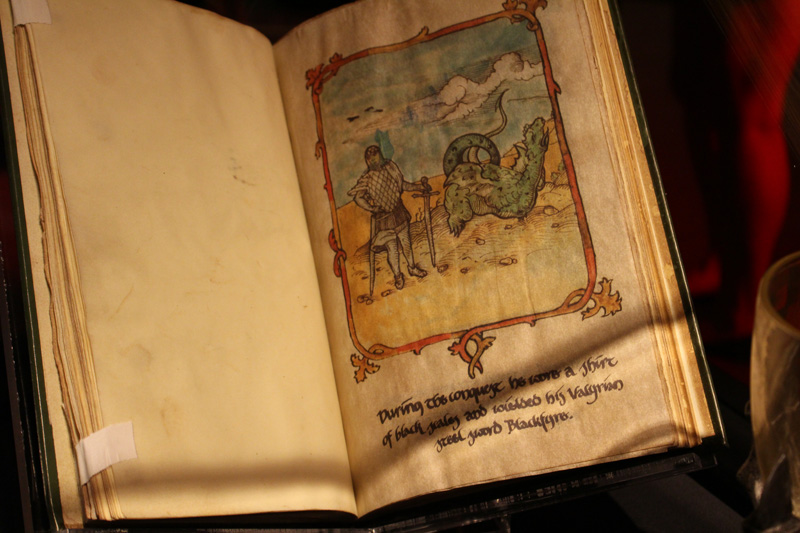 During the conquest he wore a shirt
of black scales and wielded his Valyrian
steel sword Blackfyre.